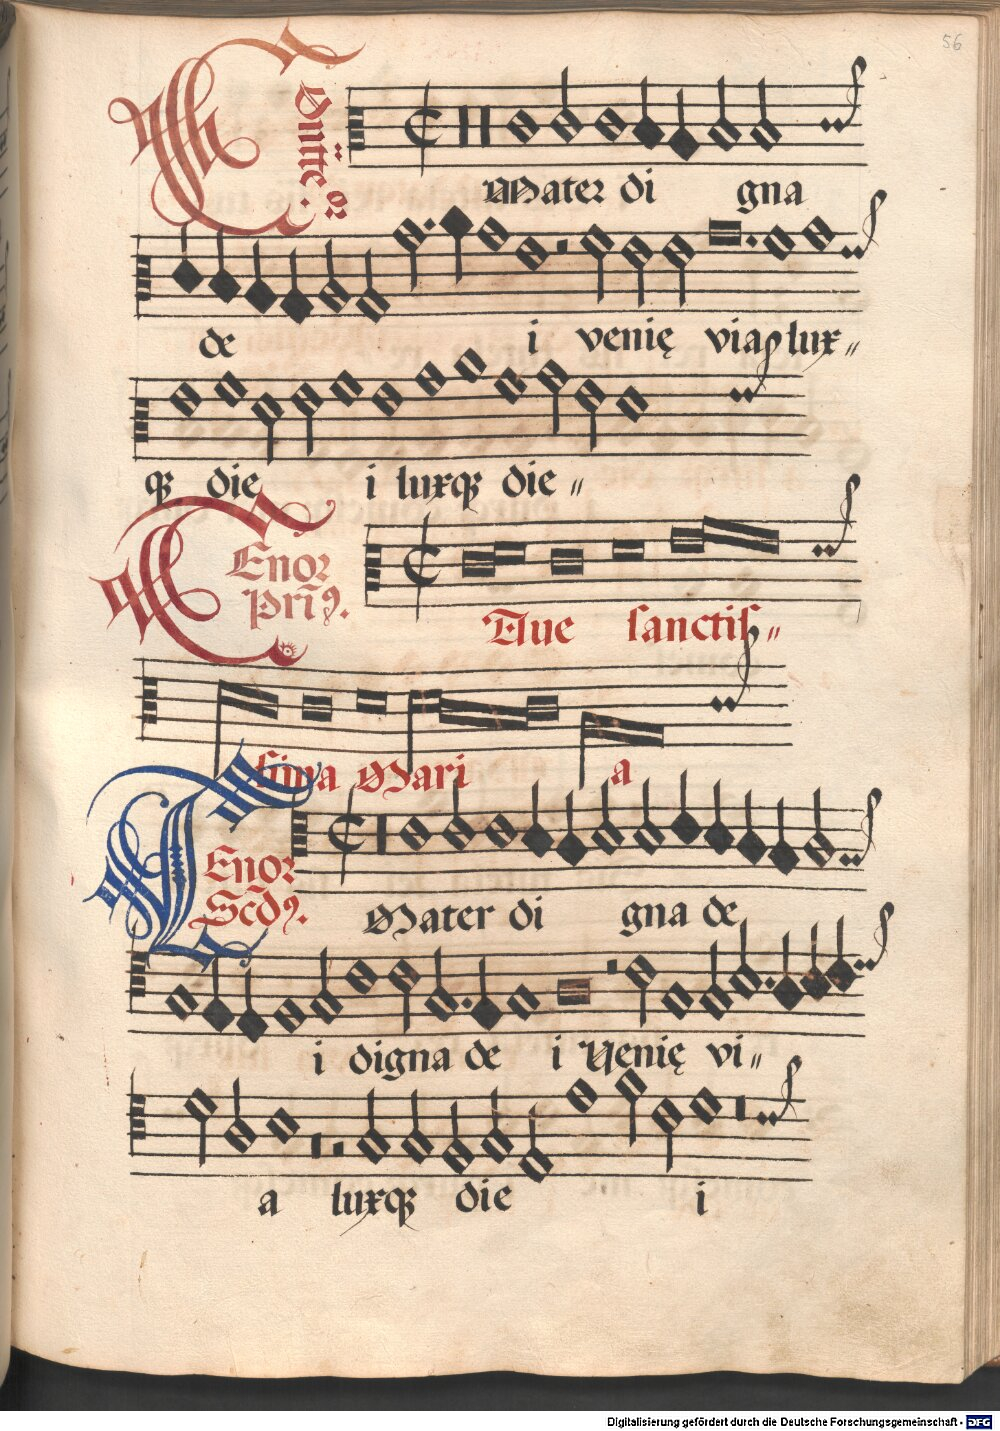 56
Mater di gna
de i venię via lux〃
qꝫ die i luxqꝫ die〃
Tenor
Pri9.
Aue sanctis〃
sima Mari a
Tenor
Scd9.
Mater di gna de
i digna de i Venię vi〃
a luxqꝫ die i
Digitalisierung gefördert durch die Deutsche Forschungsgemeinschaft - DFG